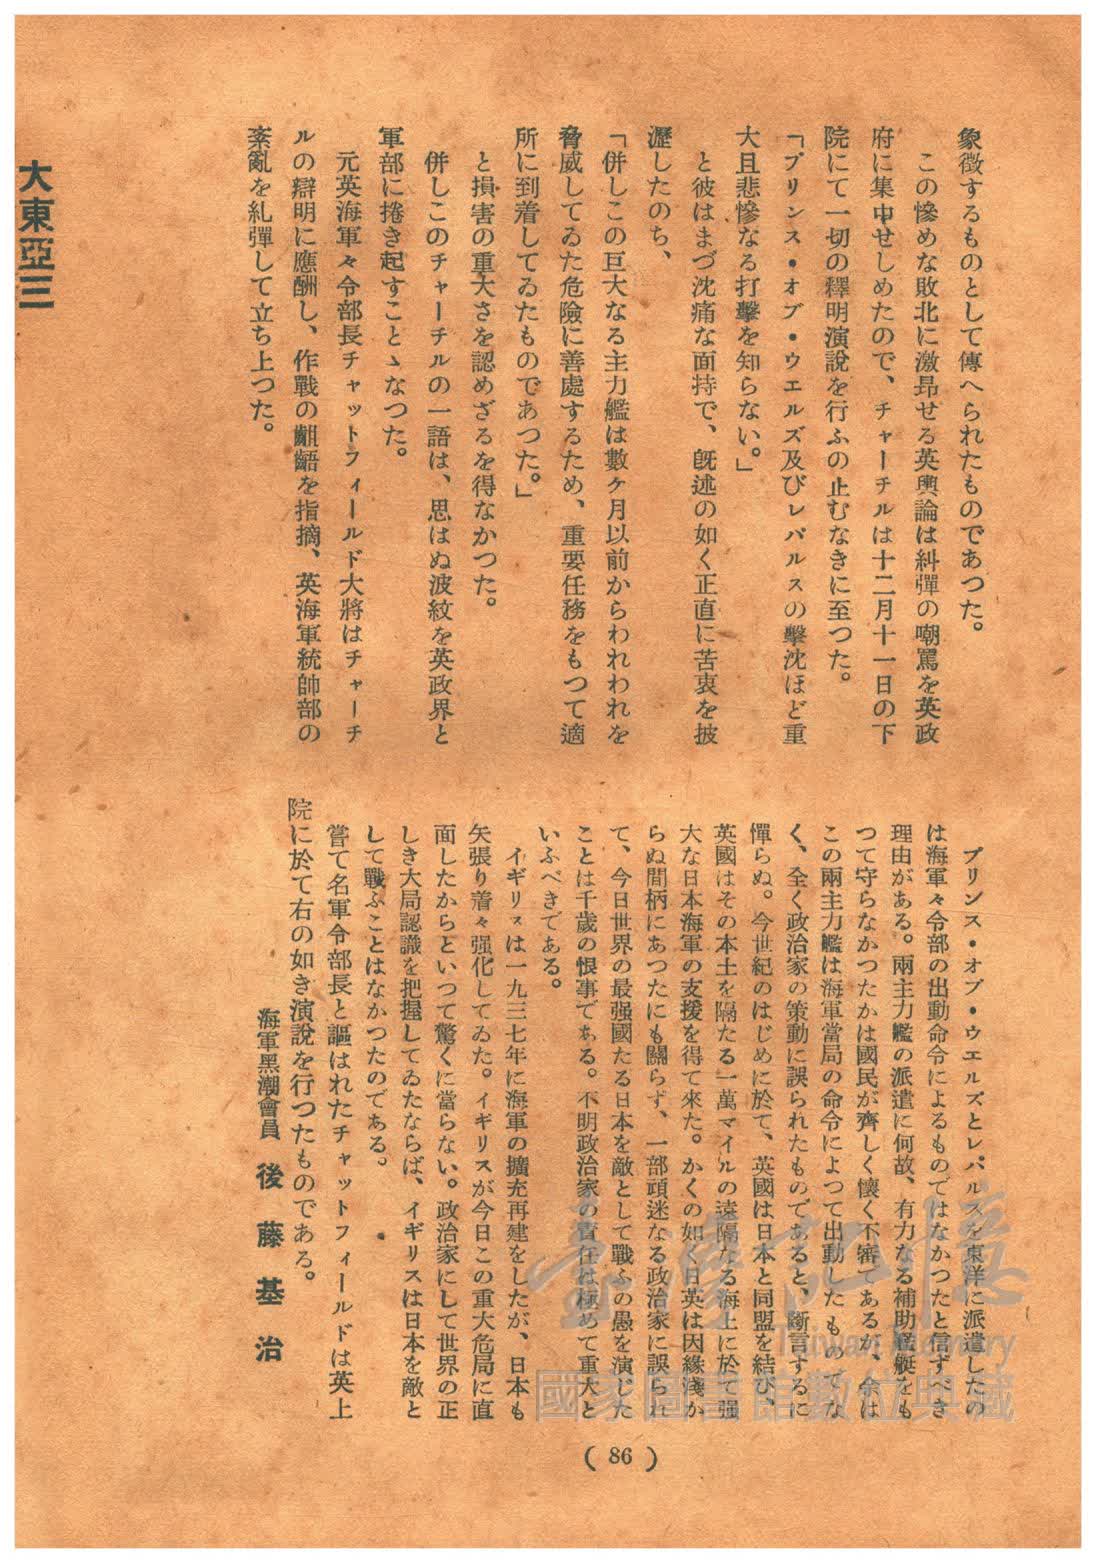 象徴するものとして傳へられたものであつた。
この慘めな敗北に激昂せる英輿論は糾彈の嘲罵を英政
府に集中せしめたので、チャーチルは十二月十一日の下
院にて一切の釋明演說を行ふの止むなきに至つた。
「プリンス・オブ・ウエルズ及びレパルスの擊沈ほど重
大且悲慘なる打擊を知らない。」
と彼はまづ沈痛な面持で、既述の如く正直に苦衷を披
瀝したのち、
「併しこの巨大なる主力艦は數ケ月以前からわれわれを
脅威してゐた危險に善處するため、重要任務をもつて適
所に到着してゐたものであつた。」
と損害の重大さを認めざるを得なかつた。
併しこのチャーチルの一語は、思はぬ波紋を英政界と
軍部に捲き起すことゝなつた。
元英海軍々令部長チャットフィールド大將はチャーチ
ルの辯明に應酬し、作戰の齟齬を指摘、英海軍統帥部の
紊亂を糺彈して立ち上つた。
プリンス・オブ・ウエルズとレパルスを東洋に派遣したの
は海軍々令部の出動命令によるものではなかつたと信ずべき
理由がある。兩主力艦の派遣に何故、有力なる補助艦艇をも
つて守らなかつたかは國民が齊しく懷く不審であるが、余は
この兩主力艦は海軍當局の命令によつて出動したものでな
く、全く政治家の策動に誤られたものであると、斷言するに
憚らぬ。今世紀のはじめに於て、英國は日本と同盟を結び、
英國はその本土を隔たる一萬マイルの遠隔なる海上に於て强
大な日本海軍の支援を得て來た。かくの如く日英は因緣淺か
らぬ間柄にあつたにも關らず、一部頑迷なる政治家に誤られ
て、今日世界の最强國たる日本を敵として戰ふの愚を演じた
ことは千歲の恨事である。不明政治家の責任は極めて重大と
いふべきである。
イギリスは一九三七年に海軍の擴充再建をしたが、日本も
矢張り着々强化してゐた。イギリスが今日この重大危局に直
面したからといつて驚くに當らない。政治家にして世界の正
しき大局認識を把握してゐたならば、イギリスは日本を敵と
して戰ふことはなかつたのである。
嘗て名軍令部長と謳はれたチャットフィールドは英上
院に於て右の如き演說を行つたものである。
海軍黑潮會員　後藤基治
大東亞三
(86)
臺灣記憶
Taiwan Memory
國家圖書館數位典藏